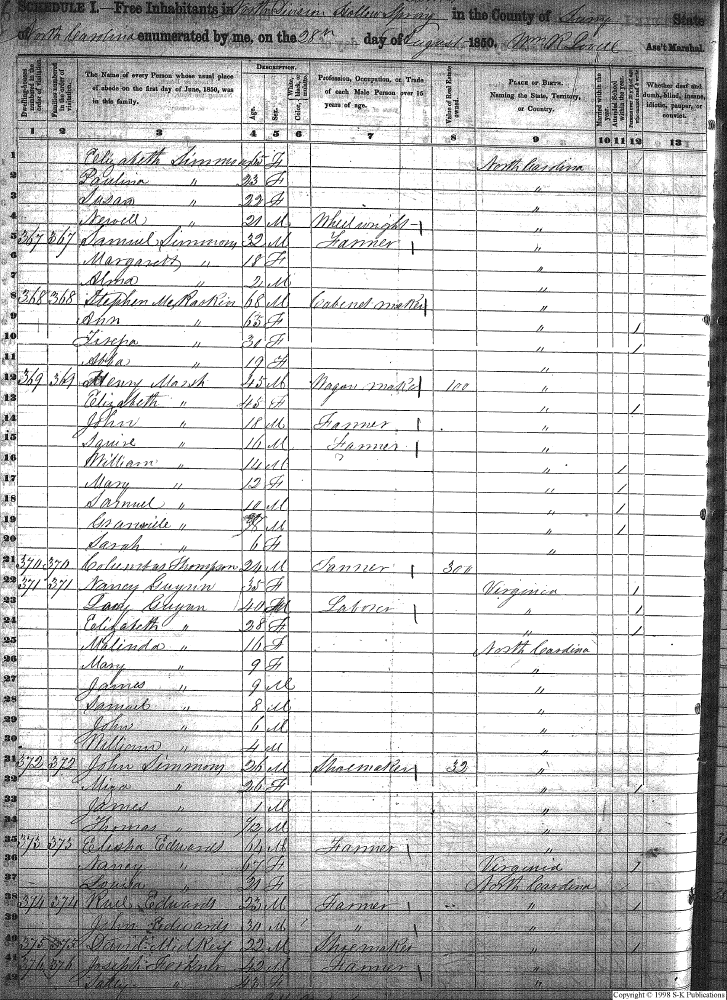 SCHEDULE I.—Free Inhabitants in Division Hollow Spring in the County of Surry State
of North Carolina enumerated by me, on the 28th day of August 1850. Wm R Ass't Marshal.
Dwelling-houses numbered in the order of visitation.
Families numbered in the order of visitation.
The Name of every Person whose usual place of abode on the first day of June, 1850, was in this family.
DESCRIPTION.
Age.
Sex.
White, black, or mulatto.
Color,
Profession, Occupation, or Trade of each Male Person over 15 years of age.
Value of Real Estate owned.
PLACE OF BIRTH.
Naming the State, Territory, or Country.
Married within the year.
Attended School within the year.
Whether deaf and dumb, blind, insane, idiotic, pauper, or convict.
1 2 3 4 5 6 7 8 9 10 11 12 13
1 Elizabeth Simmons 65 F North Carolina
2 Paulina " 23 F "
3 Susan " 22 F "
4 Newell " 21 M Wheelwright "
5 367 367 Samuel Simmons 32 M Farmer "
6 Margarett " 18 F "
7 Alma " 2 M "
8 368 368 Stephen McRaskin 68 M Cabinet maker "
9 Ann " 65 F " /
10 " 30 F " /
11 " 19 F "
12 369 369 Henry Marsh 45 M Wagon maker 100 "
13 Elizabeth " 45 F " /
14 John " 18 M Farmer "
15 Squire " 16 M Farmer "
16 William " 14 M " /
17 Mary " 12 F " /
18 Samuel " 10 M " /
19 Granville " 8 M " /
20 Sarah " 6 F "
21 370 370 Columbus Thompson 24 M Tanner 300 "
22 371 371 Nancy Guynn 35 F Virginia /
23 Guynn 40 M Laborer " /
24 Elizabeth " 28 F " /
25 Malinda " 16 F North Carolina
26 Mary " 9 F "
27 James " 9 M "
28 Samuel " 8 M "
29 John " 6 M "
30 William " 4 M "
31 372 372 John Simmons 26 M Shoemaker 32 "
32 " 26 F " /
33 James " 1 M "
34 Thomas " /12 M "
35 373 373 Elisha Edwards 64 M Farmer "
36 Nancy " 67 F Virginia /
37 Louisa " 21 F North Carolina
38 374 374 Edwards 23 M Farmer " /
39 John Edwards 30 M " "
40 375 375 22 M Shoemaker " /
41 376 376 Joseph Forkner 42 M Farmer "
42 Salley " 43 F "
Copyright © 1998 S-K Publications